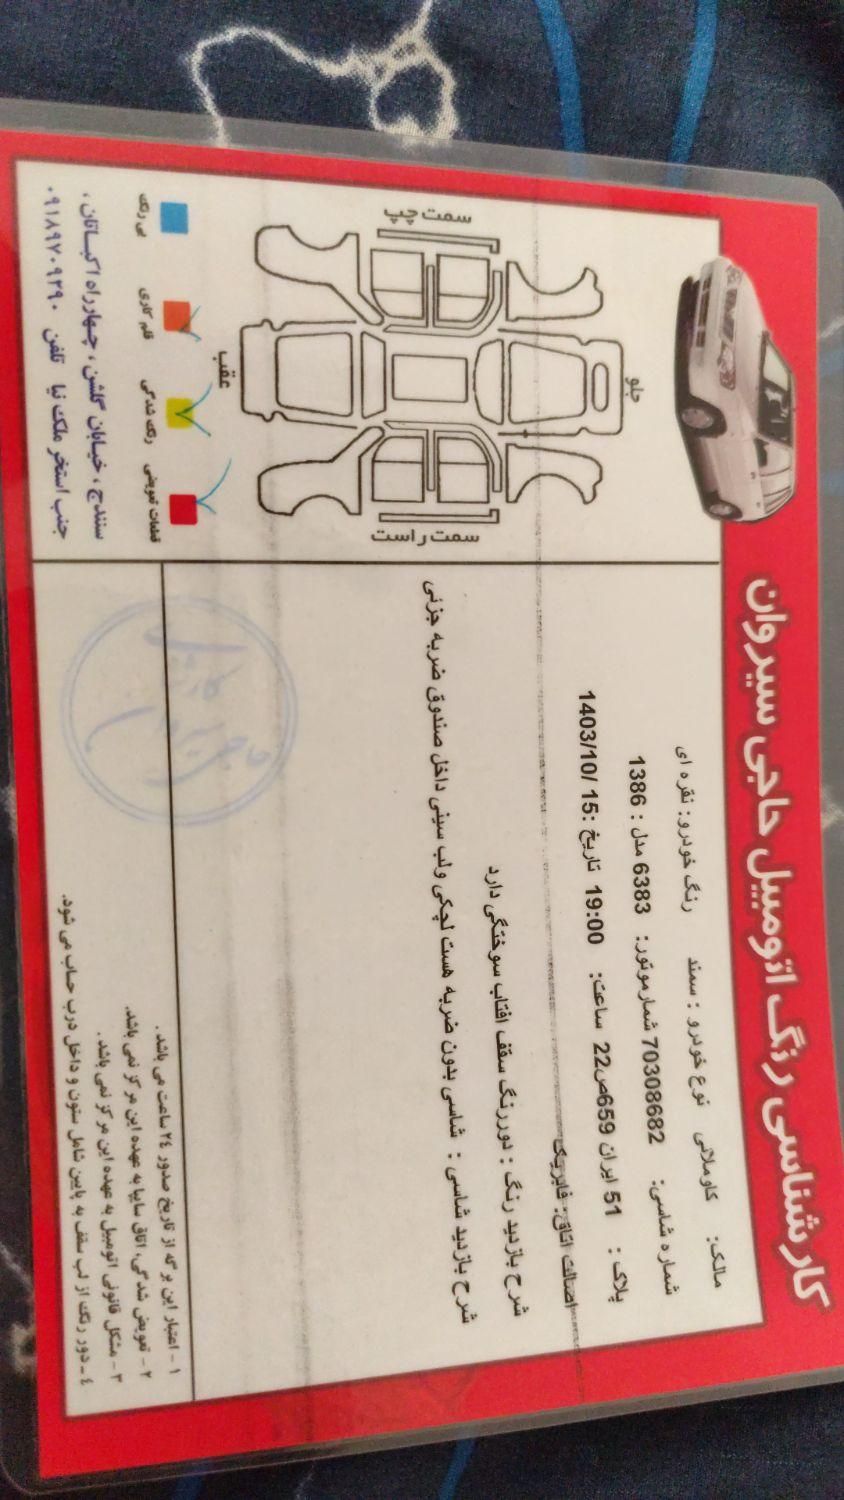 کارشناسی رنگ اتومبیل حاجی سیروان
مالک: کاوملائی نوع خودرو : سمند رنگ خودرو: نقره ای
شماره شاسی: 70308682 شمارموتور: 6383 مدل : 1386
پلاک : 51 ایران 659ص22 ساعت: 19:00 تاریخ :15 /1403/10
اصالت اتاق: فابریک
شرح بازدید رنگ : دوررنگ سقف افتاب سوختگی دارد
شرح بازدید شاسی : شاسی بدون ضربه هست لچکی ولب سینی داخل صندوق ضربه جزئی
سمت چپ
جلو
عقب
سمت راست
بی رنگ
قلم کاری
رنگ شدگی
قطعات تعویضی
سنندج ، خیابان گلشن ، چهارراه اکباتان ،
جنب استخر ملک نیا تلفن ۰۹۱۸۹۷۰۹۲۹۰
۱ - اعتبار این برگه از تاریخ صدور ٢٤ ساعت می باشد .
۲ - تعویض شدگی، اتاق سایبا به عهده این مرکز نمی باشد.
۳ - مشکل قانونی اتومبیل به عهده این مرکز نمی باشد .
٤ - دور رنگ از لب سقف به پایین شامل ستون و داخل درب حساب می شود.